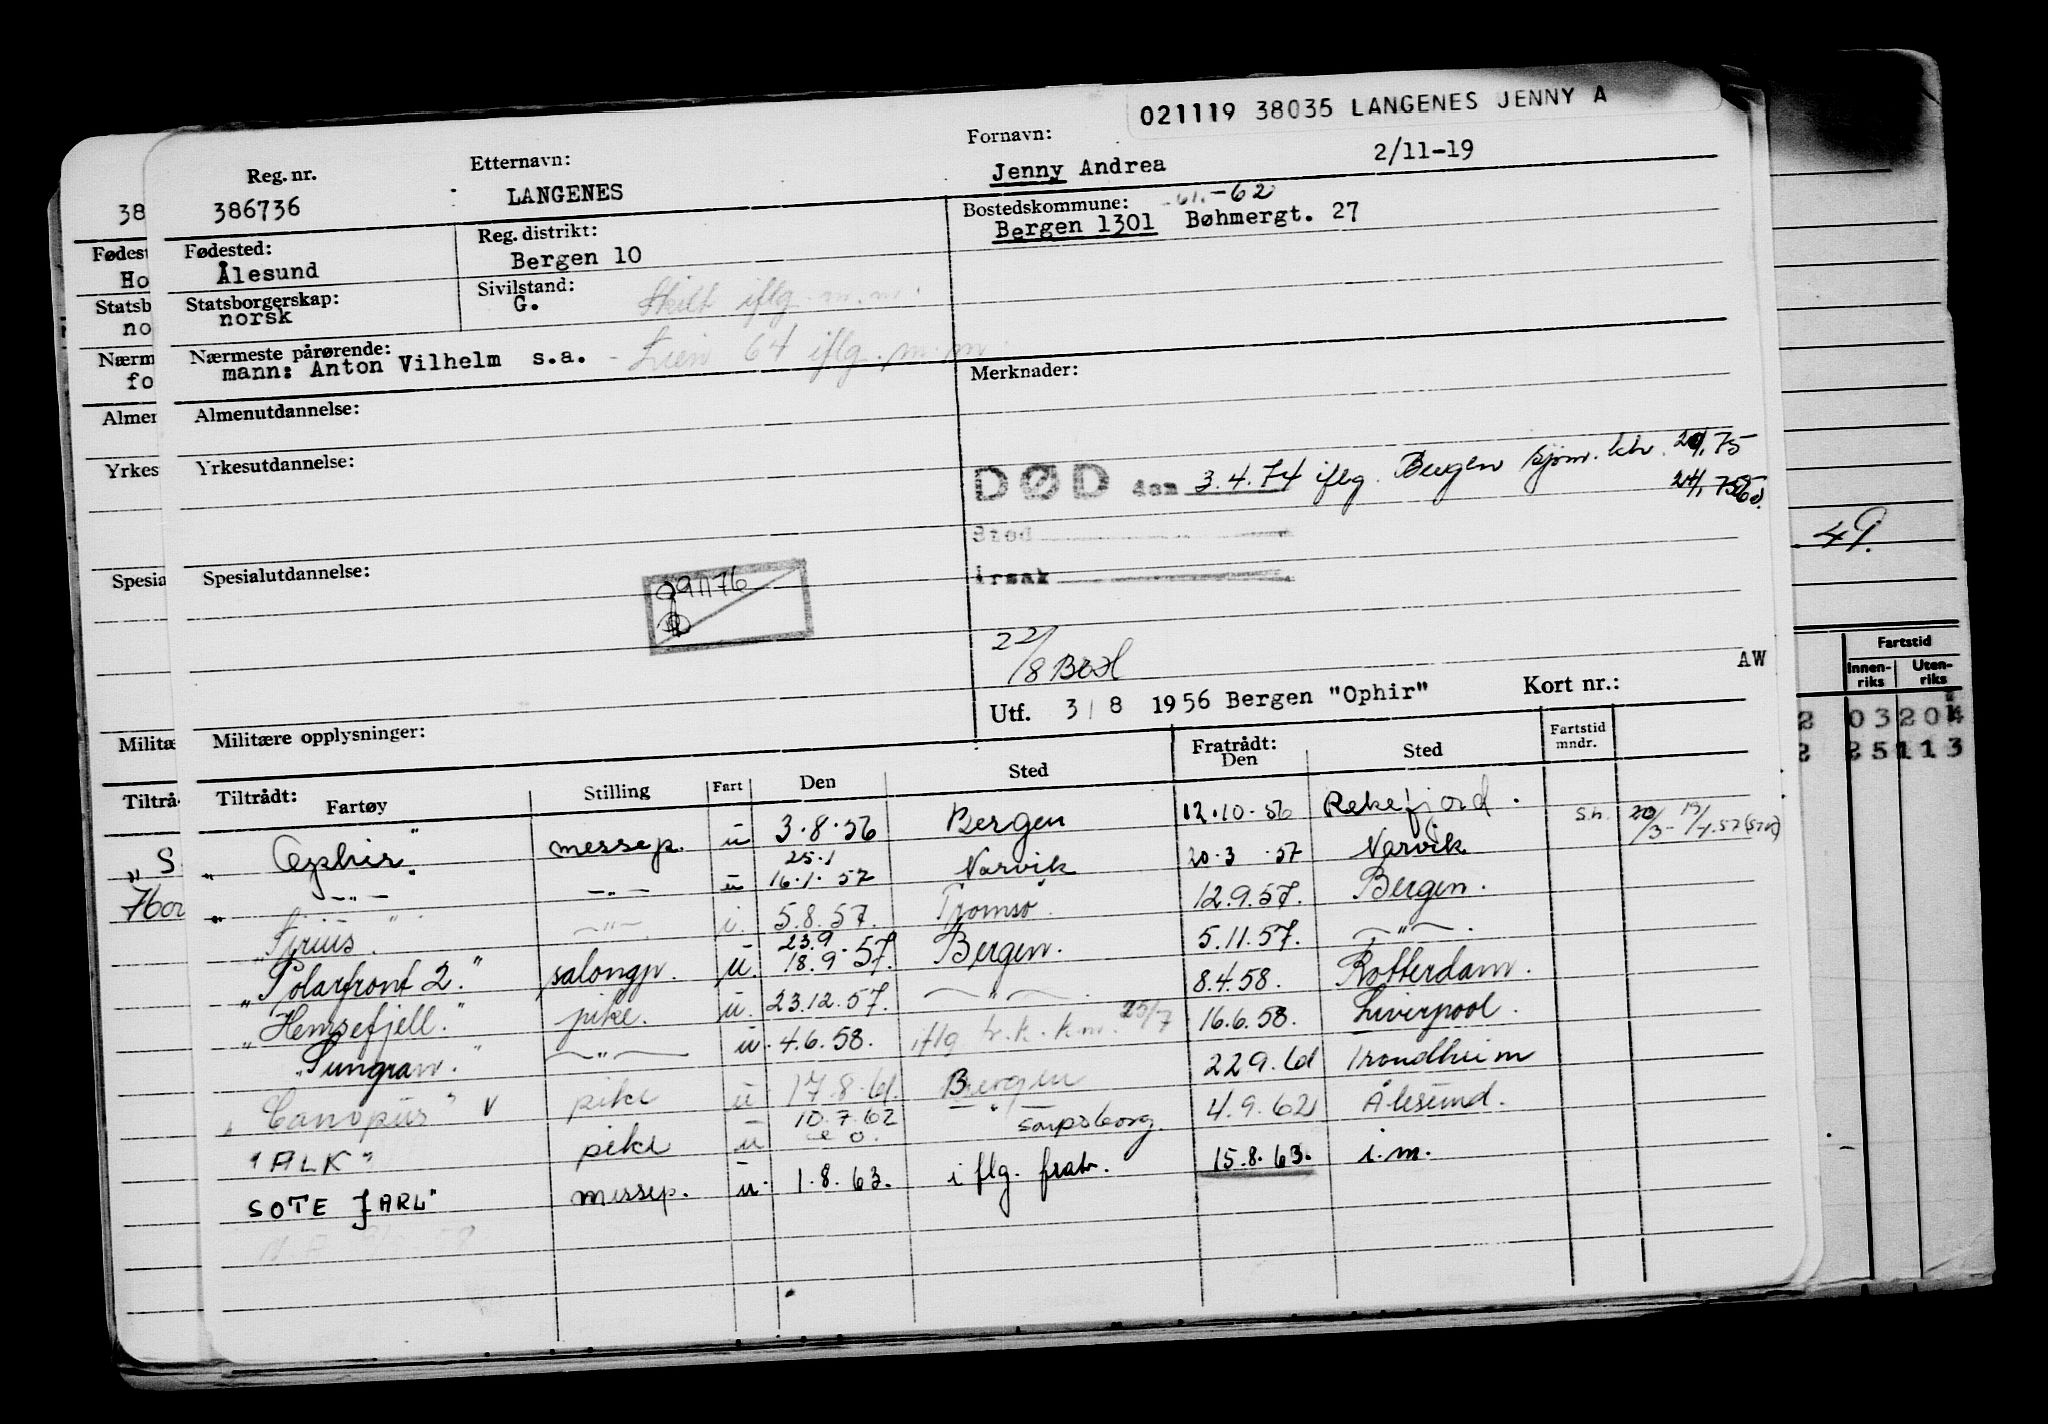 021119 38035 LANGENES JENNY A
Reg. nr. Etternavn: Fornavn:
386736 LANGENES Jenny Andrea 2/11-19
Fødested: Reg. distrikt: Bostedskommune: -62
Ålesund Bergen 10 Bergen 1301 Bøhmergt. 27
Statsborgerskap: Sivilstand:
norsk G. Skilt iflg. m.m.
Nærmeste pårørende:
mann: Anton Vilhelm s.a. - 64 iflg. m.m.
Merknader:
Almenutdannelse:
Yrkesutdannelse:
DØD den 3.4.74 iflg. Bergen sjøm. 75
Sted
Årsak
Spesialutdannelse:
091176
22/8
AW
Utf. 3/8 1956 Bergen "Ophir" Kort nr.:
Militære opplysninger:
Tiltrådt: Fartøy Stilling Fart Den Sted Fratrådt: Den Sted Fartstid mndr.
"Ophir" messep. u 3.8.56 Bergen 12.10.56 Rekefjord. s.h.
-"- -"- u 25.1 16.1.57 Narvik 20.3.57 Narvik
"Sirius" -"- i. 5.8.57. Tromsø. 12.9.57. Bergen.
"Polarfront 2." salongp. u. 23.9 18.9.57. Bergen. 5.11.57. -"-
"Hemsefjell." pike. u. 23.12.57. -"- 8.4.58. Rotterdam.
"Sungran." -"- u. 4.6.58. iflg 25/7 16.6.58. Liverpool.
"Canopus" V pike u 17.8.61. Bergen 22.9.61 Trondheim
"ALK" pike u 10.7.62 e o. " Sarpsborg. 4.9.62 Ålesund.
SOTE JARL" messep. u. 1.8.63. iflg. fratr. 15.8.63. i.m.
49.
Fartstid
Innenriks Utenriks
2 03204
2 25113
38
Fødest
Ho
Statsb
no
Nærm
fo
Almen
Yrkes
Spesia
Militæ
Tiltrå
"S
Hor